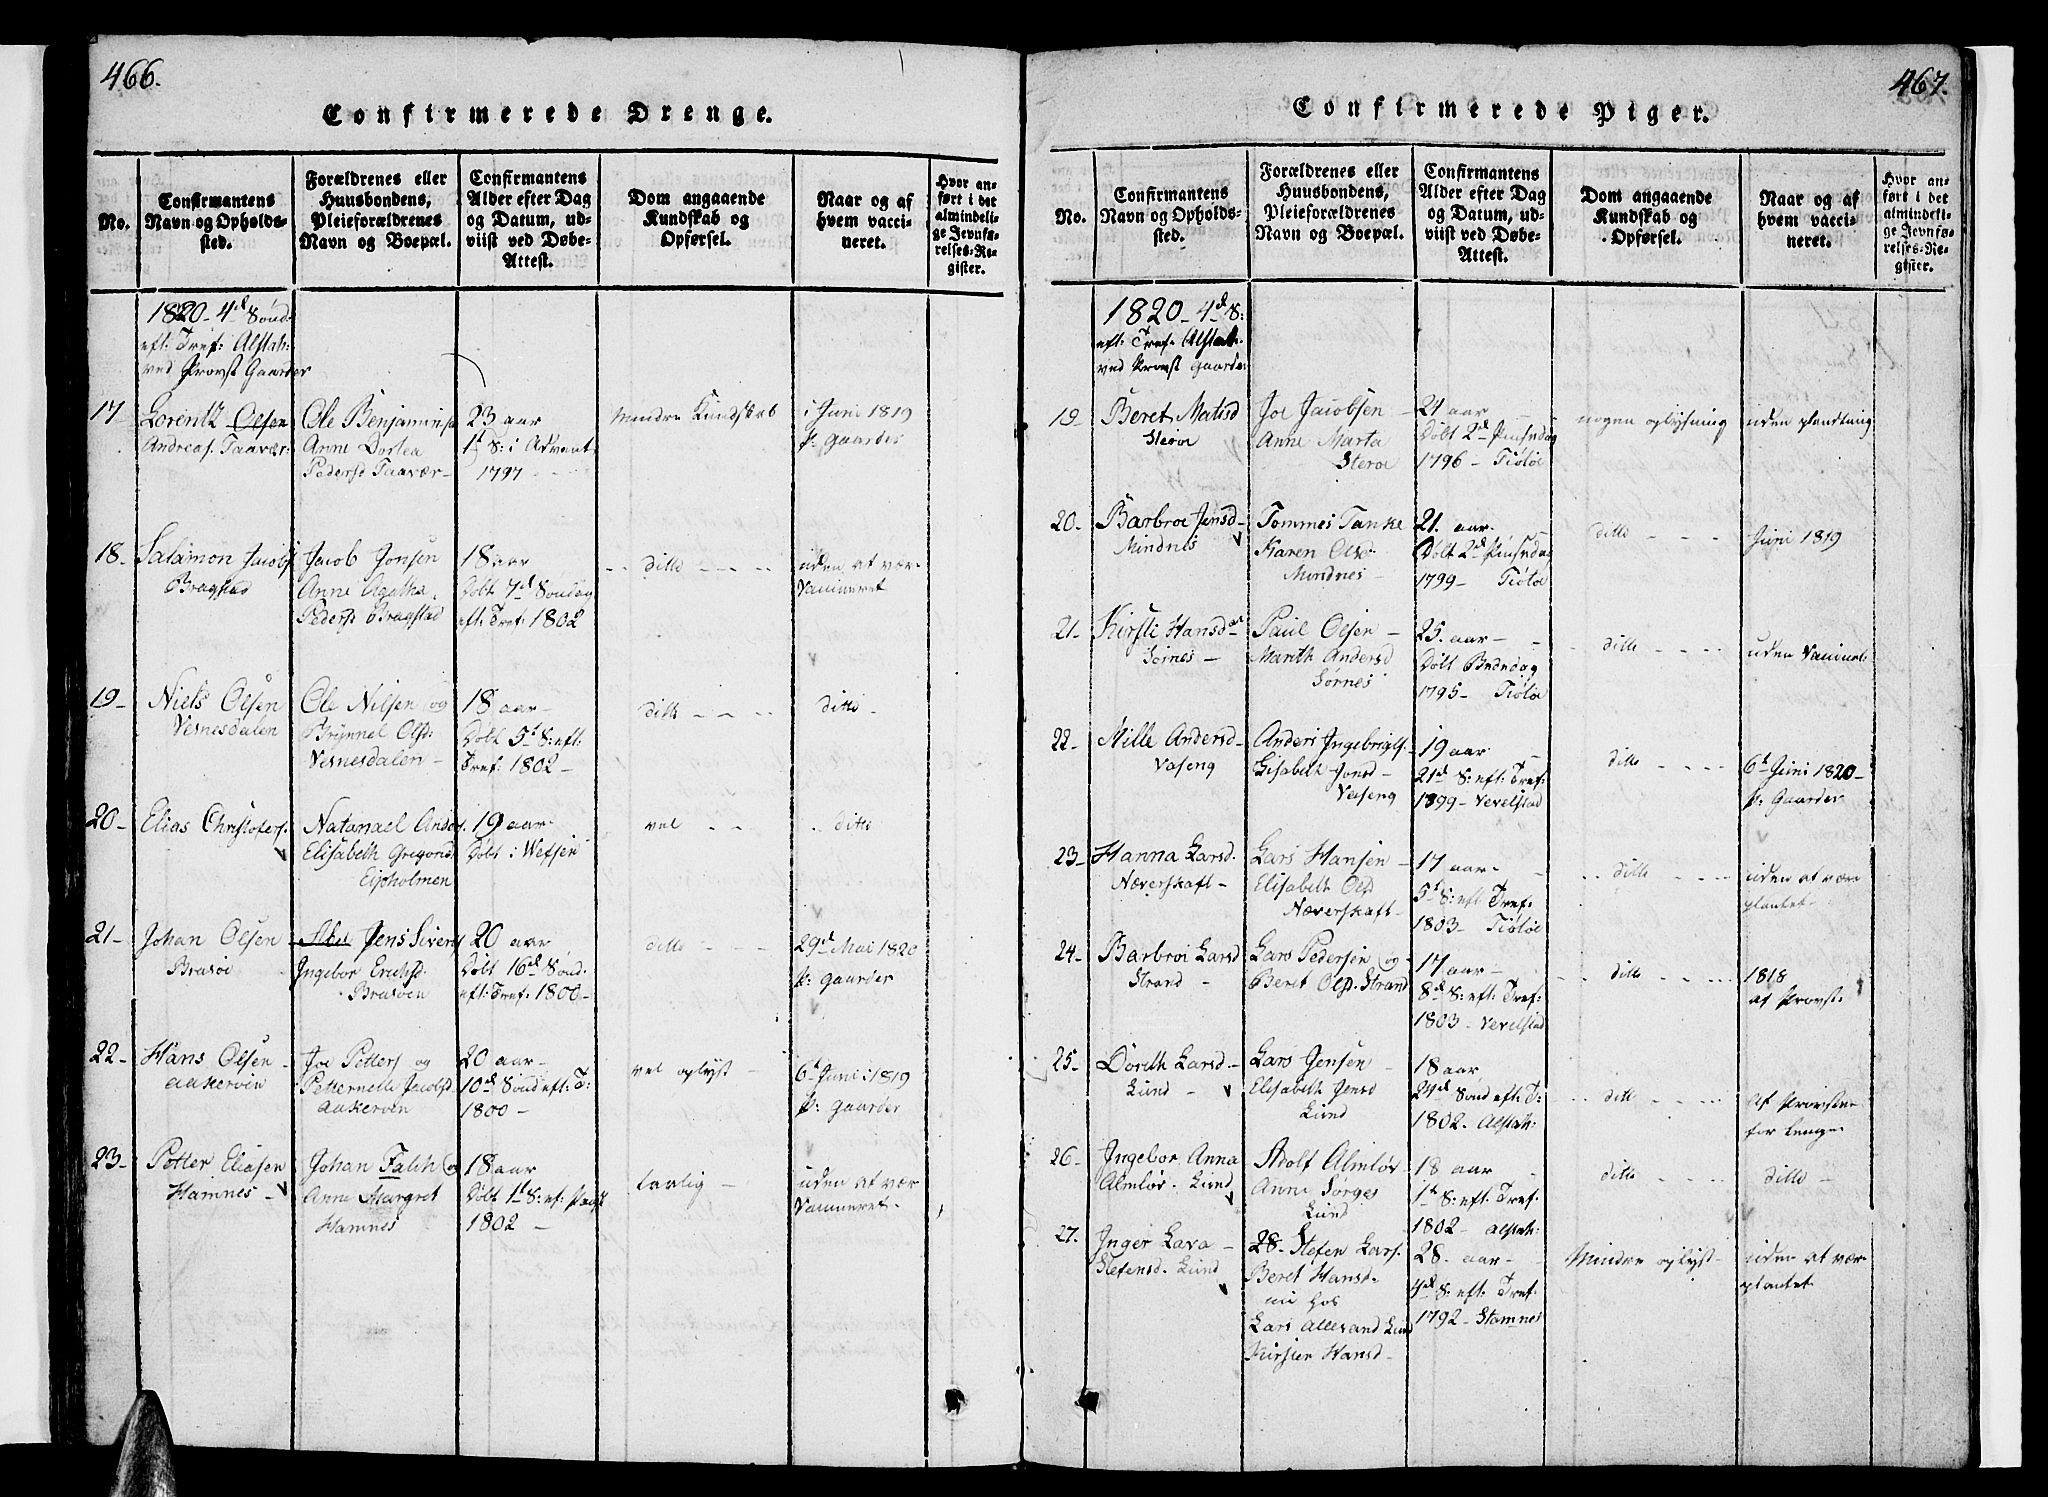 466.
Confirmerede Drenge.
No.
Confirmantens
Navn og Opholds-
sted.
Forældrenes eller
Huusbondens,
Pleieforældrenes
Navn og Boepæl.
Confirmantens
Alder efter Dag
og Datum, ud-
viist ved Døbe-
Attest.
Dom angaaende
Kundskab og
Opførsel.
Naar og af
hvem vacci-
neret.
Hvor an-
ført i det
almindeli-
ge Jevnfø-
relses-Re-
gister.
1820 - 4d Sønd.
eft: Tref: Alstah:
ved Provst Gaarder
17
Lorentz Olsen
Andreas. Taavær.
Ole Benjamins
Anne Dortea
Pedersd Taavær -
23 aar
1t S: i Advent
1797
Mindre Kundskab
i Juni 1819
p: Gaarder
18.
Salamon Jacobs
Bragstad
Jacob Jonsen
Anne Agatha
Pedersd Bragstad
18 aar
Døbt 7d Søndag
eft: Tref: 1802
ditto
uden at være
Vaccineret
19 -
Niels Olsen
Vesnesdalen
Ole Nilsen og
Brynnel Olsd:
Vesnesdalen -
18 aar -
Døbt 5t S: eft:
Tref: 1802 -
ditto
ditto -
20 -
Elias Christofers.
Natanael Anders.
Elisabeth Gregorsd
Eipholmen
19 aar.
Døbt i Wefsen
vel
ditto
21 -
Johan Olsen
Brasøe
Jens Sivers
Ingebor Erichsd.
Brasøen
20 aar
Døbt 16d Sønd.
eft: Tref: 1800 -
ditto
29d Mai 1820
p: Gaarder
22 -
Hans Olsen
Aakervin
Joe Petters og
Petternelle Jacobsd
Aakervin
20 aar -
10d Sønd eft: T:
1800 -
vel oplyst -
6t Juni 1819
p: Gaarder
23 -
Petter Eliasen
Hamnes -
Johan Falch og
Anne Margret
Hamnes
18 aar
Døbt 1t S: ef: Paask
1802 -
tarlig -
uden at vær
Vaccineret -
467.
Confirmerede Piger.
No.
Confirmantens
Navn og Opholds-
sted.
Forældrenes eller
Huusbondens,
Pleieforældrenes
Navn og Boepæl.
Confirmantens
Alder efter Dag
og Datum, ud-
viist ved Døbe-
Attest.
Dom angaaende
Kundskab og
Opførsel.
Naar og af
hvem vacci-
neret.
Hvor an-
ført i det
almindeli-
ge Jevnfø-
relses-Re-
gister.
1820 - 4d S:
eft: Tref: Alstah.
ved Provst Gaarder
19
Beret Matisd
Sterøe
Joe Jacobsen
Anne Marta
Sterøe
21 aar
Døbt 2d Pinsedag
1796 - Tiøtøe
nogen oplysning
uden plantning
20 -
Barbroe Jensd -
Mindnes
Tommes Tanke
Karen Olsd
Mindnes -
21. aar -
Døbt 2d Pinsedag
1799 - Tiøtøe
ditto
Juni 1819
21 -
Kirsti Hansd
Sørnes -
Paul Olsen -
Marith Andersd
Sørnes
25. aar -
Døbt Bededag
1795 - Tiøtøe
ditto
uden Vaccinat
22 -
Nille Andersd -
Vaseng
Anders Ingebrigts.
Lisabeth Jonsd -
Vaseng
19 aar
21d S: eft: Tref:
1799 - Vevelstad
ditto
6t Juni 1820 -
p: Gaarder
23 -
Hanna Larsd.
Næverskaft -
Lars Hansen -
Elisabeth Olsd
Næverskaft -
17 aar -
5t S: eft: Tref:
1803 - Tiøtøe
ditto
uden at være
plantet -
24 -
Barbroe Larsd
Strand -
Lars Pedersen og
Beret Olsd. Strand
17 aar -
8d S: eft: Tref:
1803 - Vevelstad
ditto
1818
af Provst.
25 -
Dorith Larsd -
Lund -
Lars Jensen -
Elisabeth Jensd
Lund
18 aar
24d Sønd eft: T:
1802 - Alstah:
ditto
af Provsten
for lenge
26 -
Ingebor Anna
Almlør - Lund
Adolf Almlør
Anne Sørges
Lund
18 aar -
1t S: eft: Tref:
1802 - Alstah:
ditto
ditto -
27.
Inger Lava -
Stefensd. Lund
28 - Stefen Lars.
Beret Hansd.
nu hos
Lars Allesand Lund
Kirsten Hansd -
28. aar -
4d S: eft: Tref:
1792 - Stamnes
Mindre oplyst
uden at vær
plantet